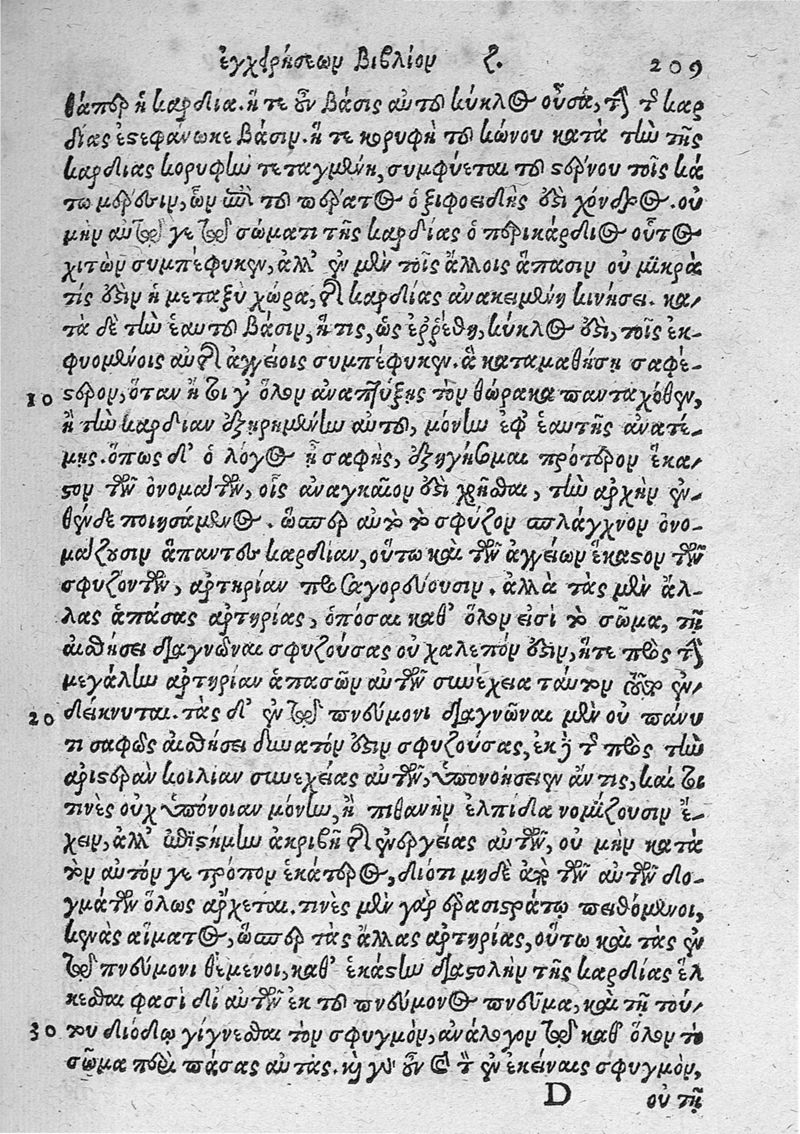 ἐγχειρήσεων Βιβλίον ζ. 209
θάπερ ἡ καρδία. ἥ τε οὖν βάσις αὐτοῦ κύκλος οὖσα, τὴν τῆς καρ
δίας ἐστεφάνωκε βάσιν. ἥ τε κορυφὴ τοῦ κώνου κατὰ τὴν τῆς
καρδίας κορυφὴν τεταγμένη, συμφύεται τοῦ στέρνου τοῖς κά
τω μέρεσιν, ὧν ἐπὶ τοῦ πέρατος ὁ ξιφοειδής ἐστι χόνδρος. οὐ
μὴν αὐτῷ γε τῷ σώματι τῆς καρδίας ὁ περικάρδιος οὗτος
χιτὼν συμπέφυκεν, ἀλλ' ἐν μὲν τοῖς ἄλλοις ἅπασιν οὐ μικρά
τίς ἐστιν ἡ μεταξὺ χώρα, τῆς καρδίας ἀνακειμένη κινήσει. κα-
τὰ δὲ τὴν ἑαυτοῦ βάσιν, ἥτις, ὡς ἐρρέθη, κύκλος ἐστὶ, τοῖς ἐκ-
φυομένοις αὐτῆς ἀγγείοις συμπέφυκεν. ἃ καταμαθήσῃ σαφέ-
10 στερον, ὅταν ἤτοι γ' ὅλον ἀναπτύξῃς τὸν θώρακα πανταχόθεν,
ἢ τὴν καρδίαν ἐξῃρημένην αὐτοῦ, μόνην ἐφ' ἑαυτῆς ἀνατέ-
μῃς. ὅπως δ' ὁ λόγος ᾖ σαφής, ἐξηγήσομαι πρότερον ἕκα-
στον τῶν ὀνομάτων, οἷς ἀναγκαῖόν ἐστι χρῆσθαι, τὴν ἀρχὴν ἐν-
θένδε ποιησάμενος. ὥσπερ αὐτὸ τὸ σφύζον σπλάγχνον ὀνο-
μάζουσιν ἅπαντες καρδίαν, οὕτω καὶ τῶν ἀγγείων ἕκαστον τῶν
σφυζόντων, ἀρτηρίαν προσαγορεύουσιν. ἀλλὰ τὰς μὲν ἄλ-
λας ἁπάσας ἀρτηρίας, ὁπόσαι καθ' ὅλον εἰσὶ τὸ σῶμα, τῇ
αἰσθήσει διαγνῶναι σφυζούσας οὐ χαλεπόν ἐστιν, ἥτε πρὸς τὴν
μεγάλην ἀρτηρίαν ἁπασῶν αὐτῶν συνέχεια ταὐτὸν τοῦτο ἐν-
20 δείκνυται. τὰς δ' ἐν τῷ πνεύμονι διαγνῶναι μὲν οὐ πάνυ
τι σαφῶς αἰσθήσει δυνατόν ἐστιν σφυζούσας, ἐκ δὲ τῆς πρὸς τὴν
ἀριστερὰν κοιλίαν συνεχείας αὐτῶν, ὑπονοήσειεν ἄν τις, καί τοι
τινὲς οὐχ ὑπόνοιαν μόνην, ἢ πιθανὴν ἐλπίδα νομίζουσιν ἔ-
χειν, ἀλλ' ἐπιστήμην ἀκριβῆ τῆς ἐνεργείας αὐτῶν, οὐ μὴν κατὰ
τὸν αὐτόν γε τρόπον ἑκάτερος, διότι μηδὲ ἀπὸ τῶν αὐτῶν δο-
γμάτων ὅλως ἄρχεται. τινὲς μὲν γὰρ ἐρασιστράτῳ πειθόμενοι,
κενὰς αἵματος, ὥσπερ τὰς ἄλλας ἀρτηρίας, οὕτω καὶ τὰς ἐν
τῷ πνεύμονι θέμενοι, καθ' ἑκάστην διαστολὴν τῆς καρδίας ἕλ
κεσθαι φασὶ δι' αὐτῶν ἐκ τοῦ πνεύμονος πνεῦμα, καὶ τῇ τού-
30 του διόδῳ γίγνεσθαι τὸν σφυγμὸν, ἀνάλογον τῷ καθ' ὅλον τὸ
σῶμα περὶ πάσας αὐτάς. καὶ γὰρ οὖν καὶ τὸν ἐν ἐκείναις σφυγμὸν,
D οὐ τῇ